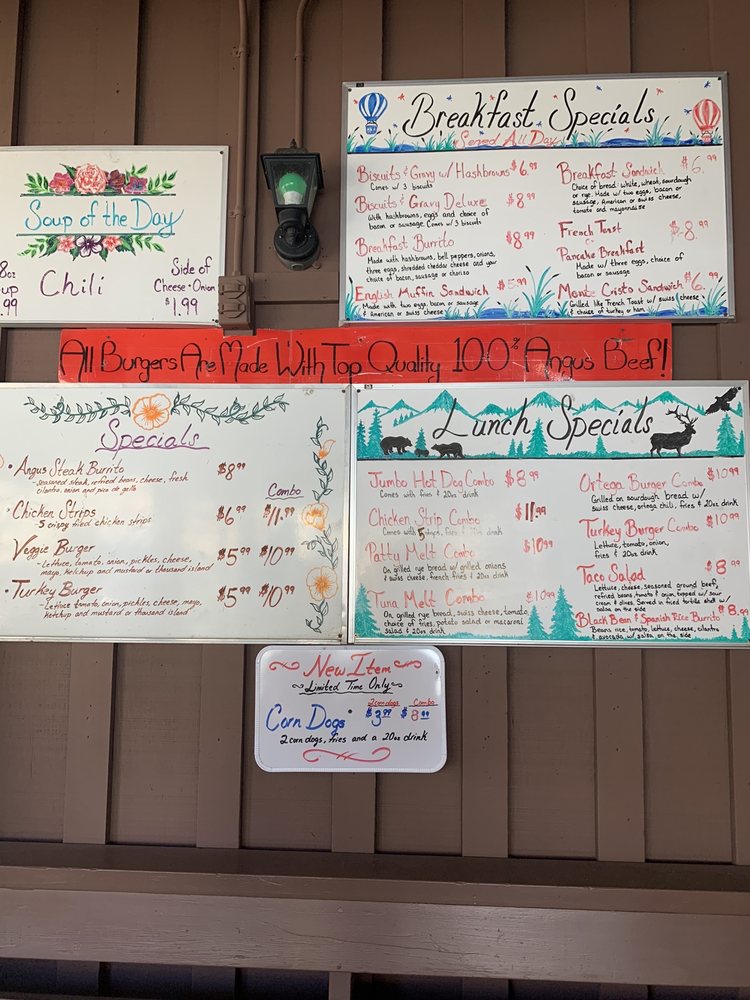 Soup of the Day
8oz
Chili
Side of
Cheese • Onion
$1.99
-up
.99
Breakfast Specials
Served All Day
Biscuits & Gravy w/ Hashbrowns $6.99
Comes w/ 3 biscuits
Biscuits & Gravy Deluxe $8.99
With hashbrowns, eggs and choice of
bacon or sausage. Comes w/ 3 biscuits
Breakfast Burrito $8.99
Made with hashbrowns, bell peppers, onions,
three eggs, shredded cheddar cheese and your
choice of bacon, sausage or chorizo
English Muffin Sandwich $5.99
Made with two eggs, bacon or sausage
& American or swiss cheese
Breakfast Sandwich $6.99
Choice of bread: white, wheat, sourdough
or rye. Made w/ two eggs, bacon or
sausage, American or swiss cheese,
tomato and mayonnaise
French Toast $8.99
Pancake Breakfast
Made w/ three eggs, choice of
bacon or sausage
Monte Cristo Sandwich $6.99
Grilled like French Toast w/ swiss cheese
& choice of turkey or ham
All Burgers Are Made With Top Quality 100% Angus Beef!
Specials
• Angus Steak Burrito $8.99
-seasoned steak, refried beans, cheese, fresh
cilantro, onion and pico de gallo
Combo
• Chicken Strips $6.99 $11.99
-5 crispy fried chicken strips
Veggie Burger $5.99 $10.99
-Lettuce, tomato, onion, pickles, cheese,
mayo, ketchup and mustard or thousand island
• Turkey Burger $5.99 $10.99
-Lettuce tomato, onion, pickles, cheese, mayo,
ketchup and mustard or thousand island
Lunch Specials
Jumbo Hot Dog Combo $8.99
Comes with fries & 20oz drink
Chicken Strip Combo $11.99
Comes with 5 strips, fries & 20oz drink
Patty Melt Combo $10.99
On grilled rye bread w/ grilled onions
& swiss cheese, french fries & 20oz drink
Tuna Melt Combo $10.99
On grilled rye bread, swiss cheese, tomato,
choice of fries, potato salad or macaroni
salad & 20oz drink
Ortega Burger Combo $10.99
Grilled on sourdough bread w/
swiss cheese, ortega chili, fries & 20oz drink
Turkey Burger Combo $10.99
Lettuce, tomato, onion,
fries & 20oz drink
Taco Salad $8.99
Lettuce, cheese, seasoned ground beef,
refried beans, tomato & onion, topped w/ sour
cream & olives. Served in fried tortilla shell w/
salsa on the side
Black Bean & Spanish Rice Burrito $8.99
Beans, rice, tomato, lettuce, cheese, cilantro
& avocado w/ salsa on the side
New Item
Limited Time Only
2 corn dogs Combo
Corn Dogs $3.99 $8.99
2 corn dogs, fries and a 20oz drink